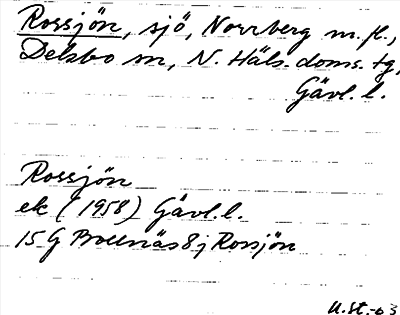 Rossjön, sjö, Norrberg m.fl.,
Delsbo sn, N. Häls. doms. tg,
Gävl. l.
Rossjön
ek (1958) Gävl. l.
15G Bollnäs 8j Rossjön
U.St.-63